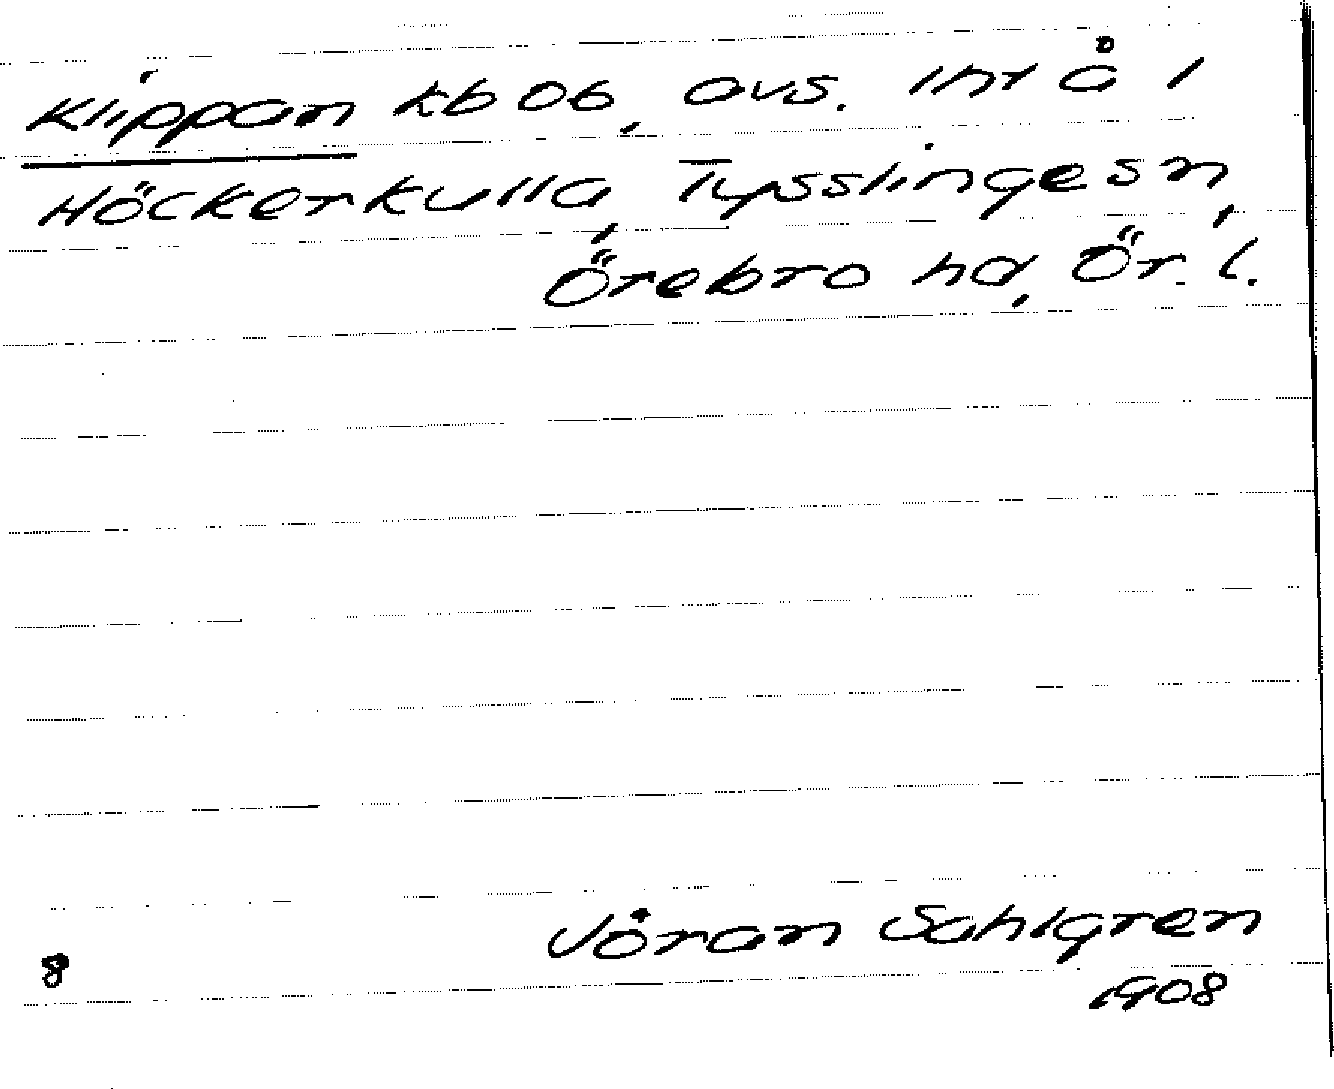 Klippan kb 06, avs. int å i
Höckerkulla, Tysslinge sn,
Örebro hd, Ör. l.
Jöran Sahlgren
8
1908